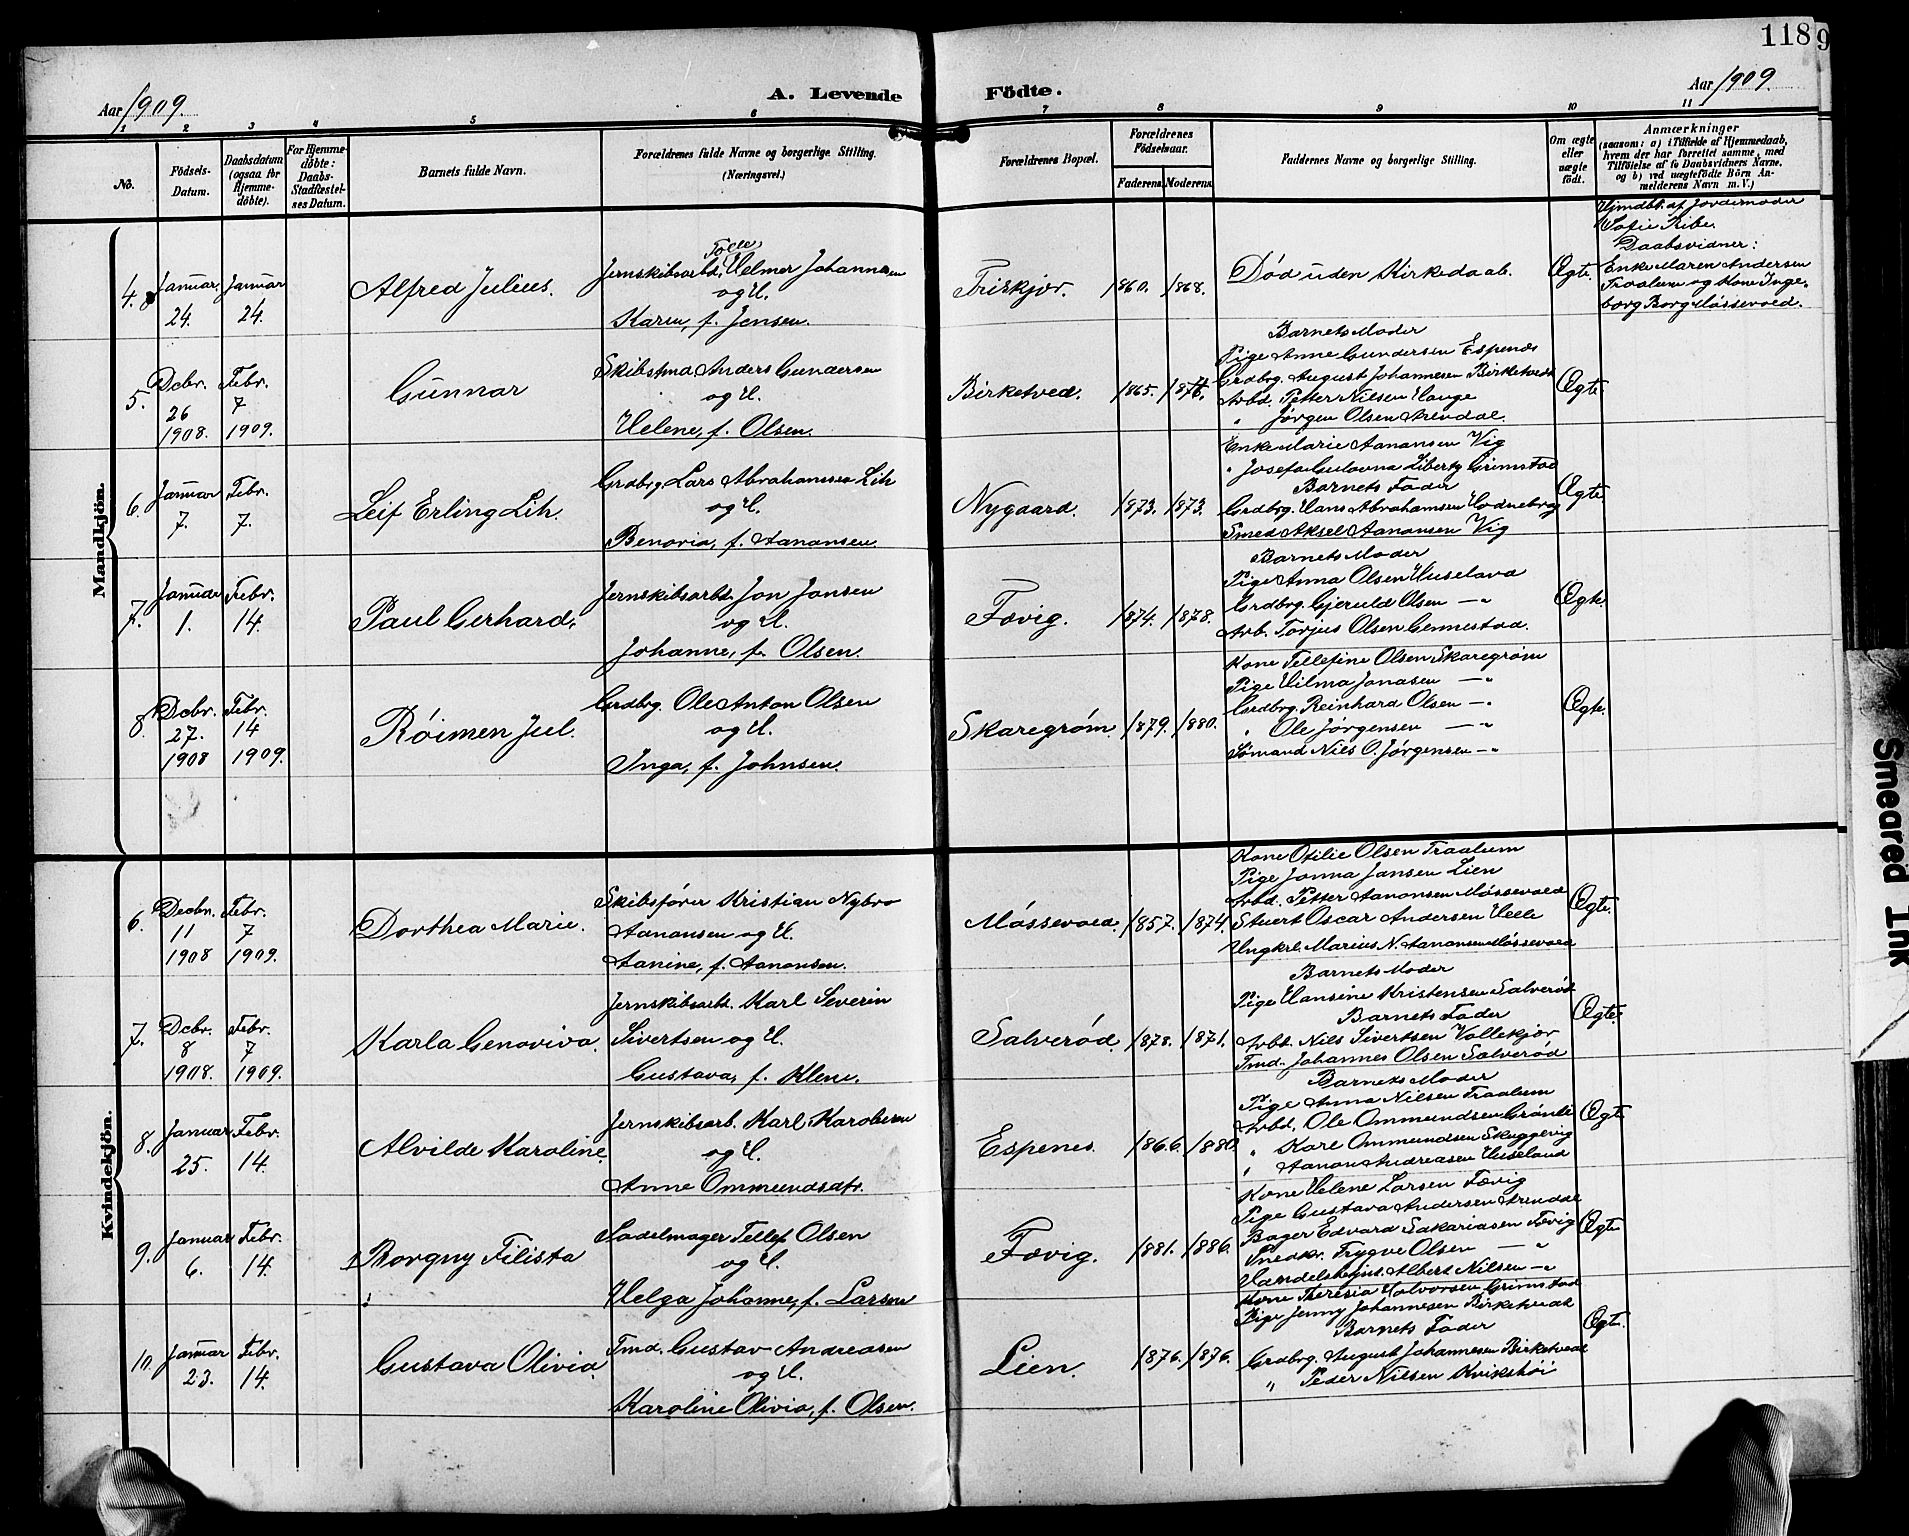 118
9
Aar 1909.
A. Levende Födte.
Aar 1909.
1 2 3 4 5 6 7 8 9 10 11
No.
Födsels-Datum.
Daabsdatum (ogsaa for Hjemmedöbte).
For Hjemmedöbte: Daabs-Stadfestelses Datum.
Barnets fulde Navn.
Forældrenes fulde Navne og borgerlige Stilling.
(Næringsvei.)
Forældrenes Bopæl.
Forældrenes Födselsaar.
Faderens. Moderens.
Faddernes Navne og borgerlige Stilling.
Om ægte eller uægte födt.
Anmærkninger
(saasom: a) i Tilfælde af Hjemmedaab, hvem der har forrettet samme, med Tilföielse af to Daabsvidners Navne, og b) ved uægtefödte Börn Anmelderens Navn m. V.)
Mandkjön.
4.
Januar 24.
Januar 24.
Alfred Julius.
Jernskibsarbd. Tolle Helmer Johannesen
og H.
Karen, f. Jensen.
Friskjær.
1860. 1868.
Död uden Kirkedaab.
Ægte.
Hjmdbt. af Jordemoder
Sofie Ribe.
Daabsvidner:
Enke Maren Andersen
Traalum og Kone Inge-
borg Borg Møssevoed.
5.
Dcbr. 26 1908.
Febr. 7 1909.
Gunnar
Skibstmd. Anders Gundersen
og H.
Helene, f. Olsen.
Birketved.
1865. 1876.
Barnets Moder
Pige Anne Gundersen Espenæs
Grdbrg. August Johannesen Birketvedt
Arbd. Petter Nilsen Hauge
" Jørgen Olsen Arendal.
Ægte.
6.
Januar 7.
Febr. 7.
Leif Erling Lih.
Grdbrg. Lars Abrahamsen Lih
og H.
Benovia, f. Aanansen.
Nygaard.
1873. 1873.
Enke Marie Aanansen Vig
" Josefa Gulovna Liberty Grimstad
Barnets Fader
Grdbrg. Hans Abrahamsen Hodnebrog
Smed Aksel Aanonsen Vig
Ægte.
7.
Januar 1.
Febr. 14.
Paul Gerhard,
Jernskibsarbt. Jon Jansen
og H.
Johanne, f. Olsen.
Fævig.
1874. 1878.
Barnets Moder
Pige Anna Olsen Huseland
Grdbrg. Gjeruld Olsen — "
Arb. Torjus Olsen Gennestad.
Ægte.
8.
Dcbr. 27. 1908
Febr. 14 1909.
Røimen Jul.
Grdbrg. Ole Anton Olsen
og H.
Inga, f. Johnsen.
Skaregrøm
1879. 1880.
Kone Tellefine Olsen Skaregrøm
Pige Hilma Jonasen — "
Grdbrg. Reinhard Olsen — "
" Ole Jørgensen — "
Sømand Niels O. Jørgensen — "
Ægte.
Kvindekjön.
6.
Decbr. 11 1908
Febr. 7 1909.
Dorthea Marie.
Skibsfører Kristian Nybro
Aanansen og H.
Aanine, f. Aanonsen.
Møssevoed.
1857. 1874.
Kone Otilie Olsen Traalum
Pige Jonna Jansen Lien
Arbd. Petter Aanonsen Møssevoed
Stuert Oscar Andersen Helle
Ungkrl. Marius N. Aanonsen Møssevoed
Ægte.
7.
Dcbr. 8 1908.
Febr. 7 1909.
Karla Genoviva.
Jernskibsarbt. Karl Severin
Sivertsen og H.
Gustava, f. Klem.
Salverød.
1878. 1871.
Barnets Moder
Pige Hansine Kristensen Salverød
Barnets Fader
Arbd. Nils Sivertsen Vollekjær
Tmd. Johannes Olsen Salverød
Ægte.
8.
Januar 25.
Febr. 14.
Alvilde Karoline.
Jernskibsarb. Karl Karolusen
og H.
Anne Ommundsdtr.
Espenes.
1866. 1880.
Barnets Moder
Pige Anna Nilsen Traalum
Arbd. Ole Ommundsen Grønli
" Karl Ommundsen Skuggevig
" Aanon Andreasen Huseland
Ægte
9.
Januar 6.
Febr. 14.
Borgny Filista
Sadelmager Tellef Olsen
og H.
Helga Johanne, f. Larsen
Fævig.
1881. 1886.
Kone Helene Larsen Fævig
Pige Gustava Andersen Arendal
Bager Edvard Sakariasen Fævig
Snedkr. Trygve Olsen — "
Handelsbetjnt. Albert Nilsen — "
Ægte
10.
Januar 23.
Febr. 14.
Gustava Olivia.
Tmd. Gustav Andreasen
og H.
Karoline Olivia, f. Olsen.
Lien.
1876. 1876.
Kone Theresia Halvorsen Grimstad
Pige Jenny Johannesen Birketvedt
Barnets Fader
Grdbrg. August Johannesen Birketvedt
" Peder Nilsen Kvikshøi
Ægte.
Smeared Ink